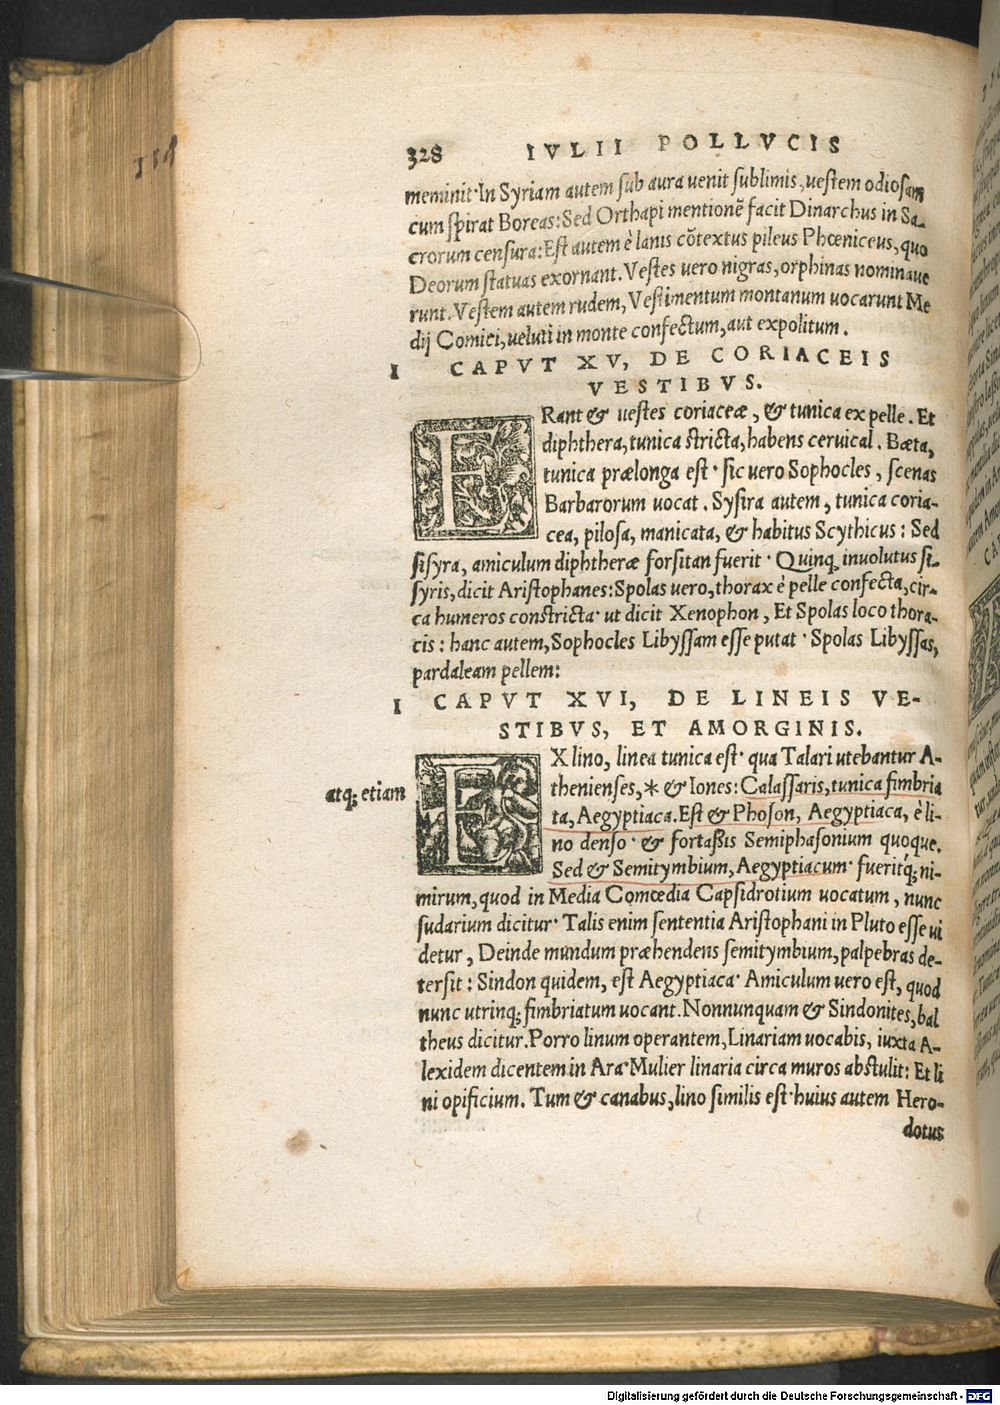 118
328 IVLII POLLVCIS
meminit·In Syriam autem sub aura uenit sublimis, uestem odiosam
cum spirat Boreas: Sed Orthapi mentionē facit Dinarchus in Sa-
crorum censura: Est autem è lanis cōtextus pileus Phœniceus, quo
Deorum statuas exornant. Vestes uero nigras, orphinas nominaue
runt. Vestem autem rudem, Vestimentum montanum uocarunt Me
dij Comici, ueluti in monte confectum, aut expolitum.
I CAPVT XV, DE CORIACEIS
VESTIBVS.
ERant & uestes coriaceæ, & tunica ex pelle. Et
diphthera, tunica stricta, habens ceruical. Bæta,
tunica prælonga est· sic uero Sophocles, scenas
Barbarorum uocat. Sysira autem, tunica coria-
cea, pilosa, manicata, & habitus Scythicus: Sed
sisyra, amiculum diphtheræ forsitan fuerit· Quinq; inuolutus si-
syris, dicit Aristophanes: Spolas uero, thorax è pelle confecta, cir-
ca humeros constricta· ut dicit Xenophon, Et Spolas loco thora-
cis: hanc autem, Sophocles Libyssam esse putat· Spolas Libyssas,
pardaleam pellem:
I CAPVT XVI, DE LINEIS VE-
STIBVS, ET AMORGINIS.
EX lino, linea tunica est· qua Talari utebantur A-
thenienses, * & Iones: Calassaris, tunica fimbria
atq; etiam
ta, Aegyptiaca. Est & Phoson, Aegyptiaca, è li-
no denso· & fortaßis Semiphasonium quoque.
Sed & Semitymbium, Aegyptiacum· fueritq́; ni-
mirum, quod in Media Comœdia Capsidrotium uocatum, nunc
sudarium dicitur· Talis enim sententia Aristophani in Pluto esse ui
detur, Deinde mundum præhendens semitymbium, palpebras de-
tersit: Sindon quidem, est Aegyptiaca· Amiculum uero est, quod
nunc utrinq; fimbriatum uocant. Nonnunquam & Sindonites, bal
theus dicitur. Porro linum operantem, Linariam uocabis, iuxta A-
lexidem dicentem in Ara· Mulier linaria circa muros abstulit: Et li
ni opificium. Tum & canabus, lino similis est· huius autem Hero-
dotus
Digitalisierung gefördert durch die Deutsche Forschungsgemeinschaft - DFG